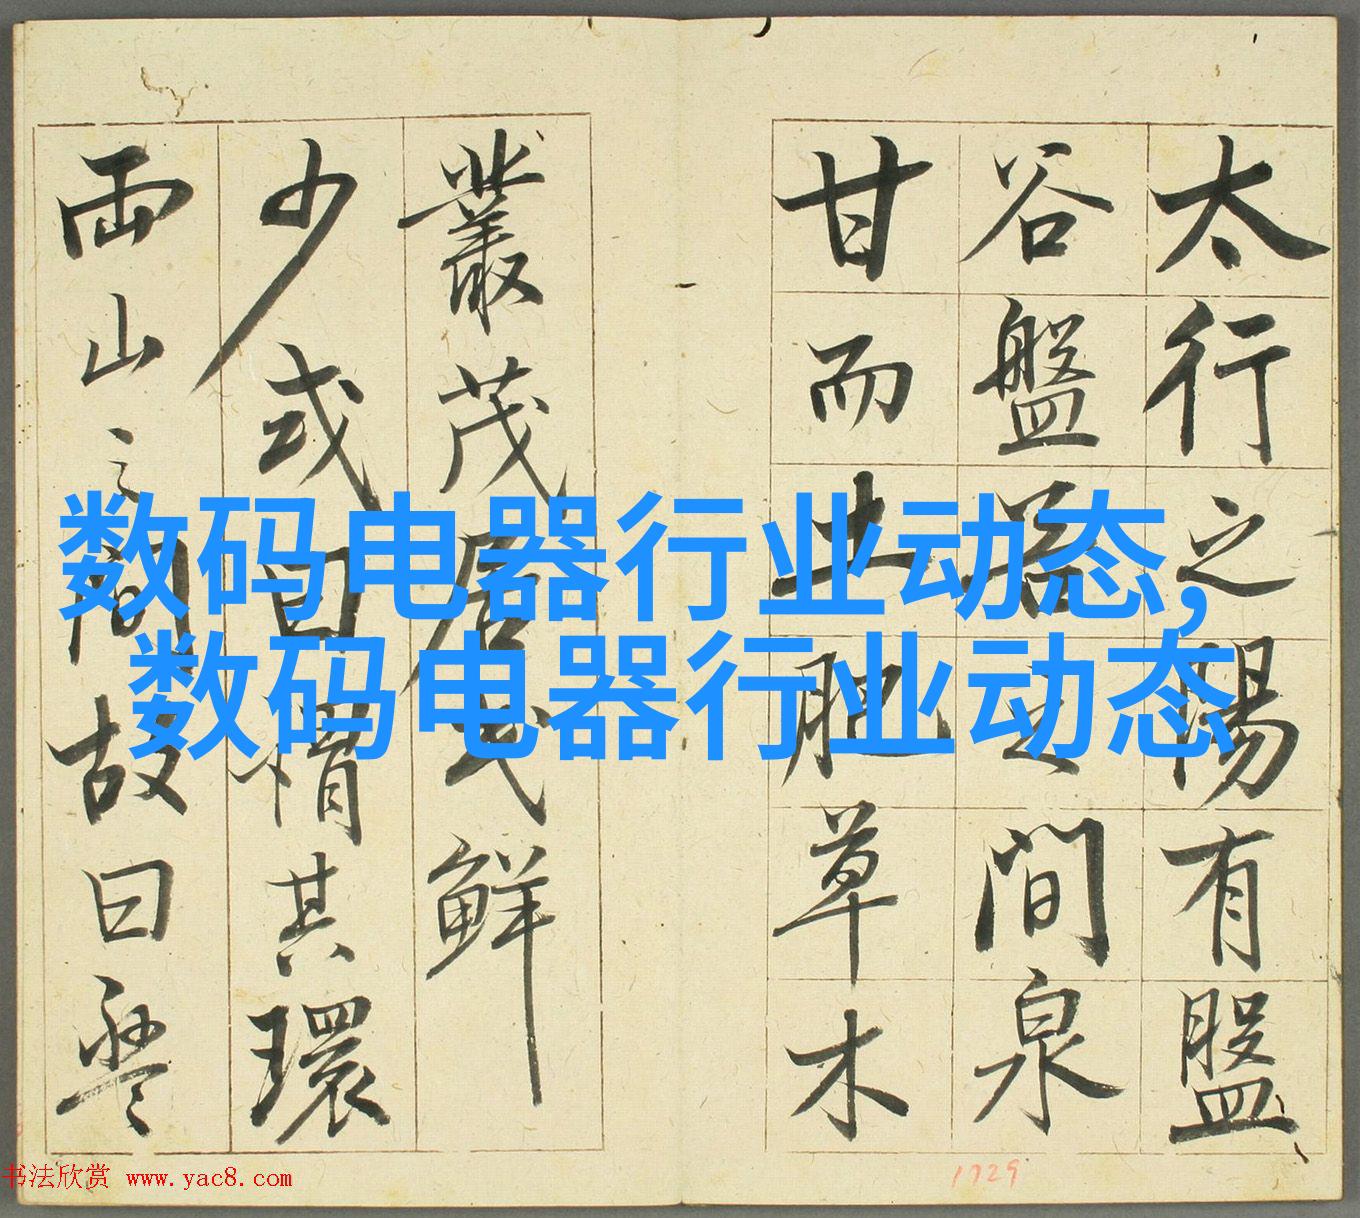 太行之陽有盤
谷盤谷之間泉
甘而土肥草木
叢茂居民鮮
少或曰謂其環
兩山之間故曰盤
数码电器行业动态,
数码电器行业动态
书法欣赏 www.yac8.com
1729